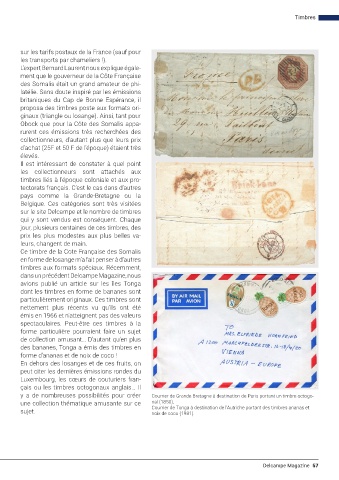 Timbres
sur les tarifs postaux de la France (sauf pour
les transports par chameliers !).
L'expert Bernard Laurent nous explique égale-
ment que le gouverneur de la Côte Française
des Somalis était un grand amateur de phi-
latélie. Sans doute inspiré par les émissions
britaniques du Cap de Bonne Espérance, il
proposa des timbres poste aux formats ori-
ginaux (triangle ou losange). Ainsi, tant pour
Obock que pour la Côte des Somalis appa-
rurent ces émissions très recherchées des
collectionneurs, d'autant plus que leurs prix
d'achat (25F et 50 F de l'époque) étaient très
élevés.
Il est intéressant de constater à quel point
les collectionneurs sont attachés aux
timbres liés à l'époque coloniale et aux pro-
tectorats français. C'est le cas dans d'autres
pays comme la Grande-Bretagne ou la
Belgique. Ces catégories sont très visitées
sur le site Delcampe et le nombre de timbres
qui y sont vendus est conséquent. Chaque
jour, plusieurs centaines de ces timbres, des
prix les plus modestes aux plus belles va-
leurs, changent de main.
Ce timbre de la Côte Française des Somalis
en forme de losange m'a fait penser à d'autres
timbres aux formats spéciaux. Récemment,
dans un précédent Delcampe Magazine, nous
avions publié un article sur les îles Tonga
dont les timbres en forme de bananes sont
particulièrement originaux. Ces timbres sont
nettement plus récents vu qu'ils ont été
émis en 1966 et n'atteignent pas des valeurs
spectaculaires. Peut-être ces timbres à la
forme particulière pourraient faire un sujet
de collection amusant... D'autant qu'en plus
des bananes, Tonga a émis des timbres en
forme d'ananas et de noix de coco !
En dehors des losanges et de ces fruits, on
peut citer les dernières émissions rondes du
Luxembourg, les cœurs de couturiers fran-
çais ou les timbres octogonaux anglais... Il
y a de nombreuses possibilités pour créer
une collection thématique amusante sur ce
sujet.
Paris
BY AIR MAIL
PAR AVION
TO:
MRS. ELFRIEDE
A 1200
VIENNA
AUSTRIA - EUROPE
Courrier de Grande Bretagne à destination de Paris portant un timbre octogo-
nal (1850).
Courrier de Tonga à destination de l'Autriche portant des timbres ananas et
noix de coco (1981).
Delcampe Magazine 67